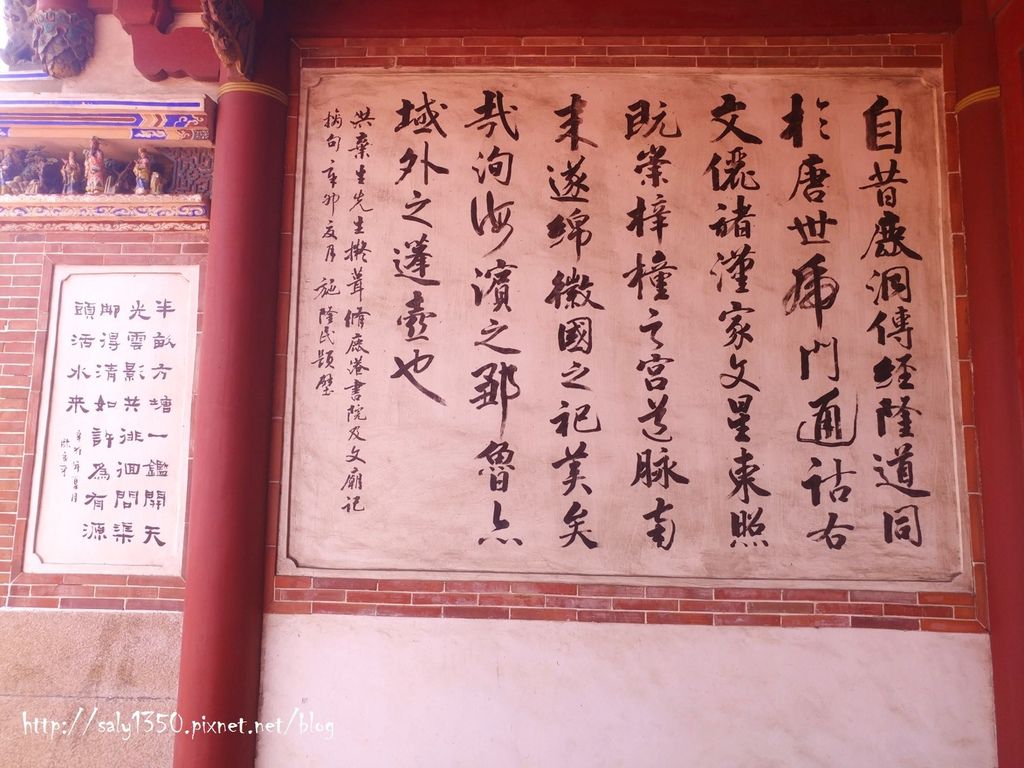 自昔鹿洞傳經隆道同
於唐世虎門通詁右
文儷諸漢家文星東照
既崇梓橦之宮道脉南
來遂綿徽國之祀美矣
哉洵海濱之鄒魯亦
域外之蓬壺也
洪棄生先生擬募脩鹿港書院及文廟記
摘句辛卯友月施隆民題壁
半畝方塘一鑑開天
光雲影共徘徊問渠
那得清如許為有源
頭活水來
http://saly1350.pixnet.net/blog